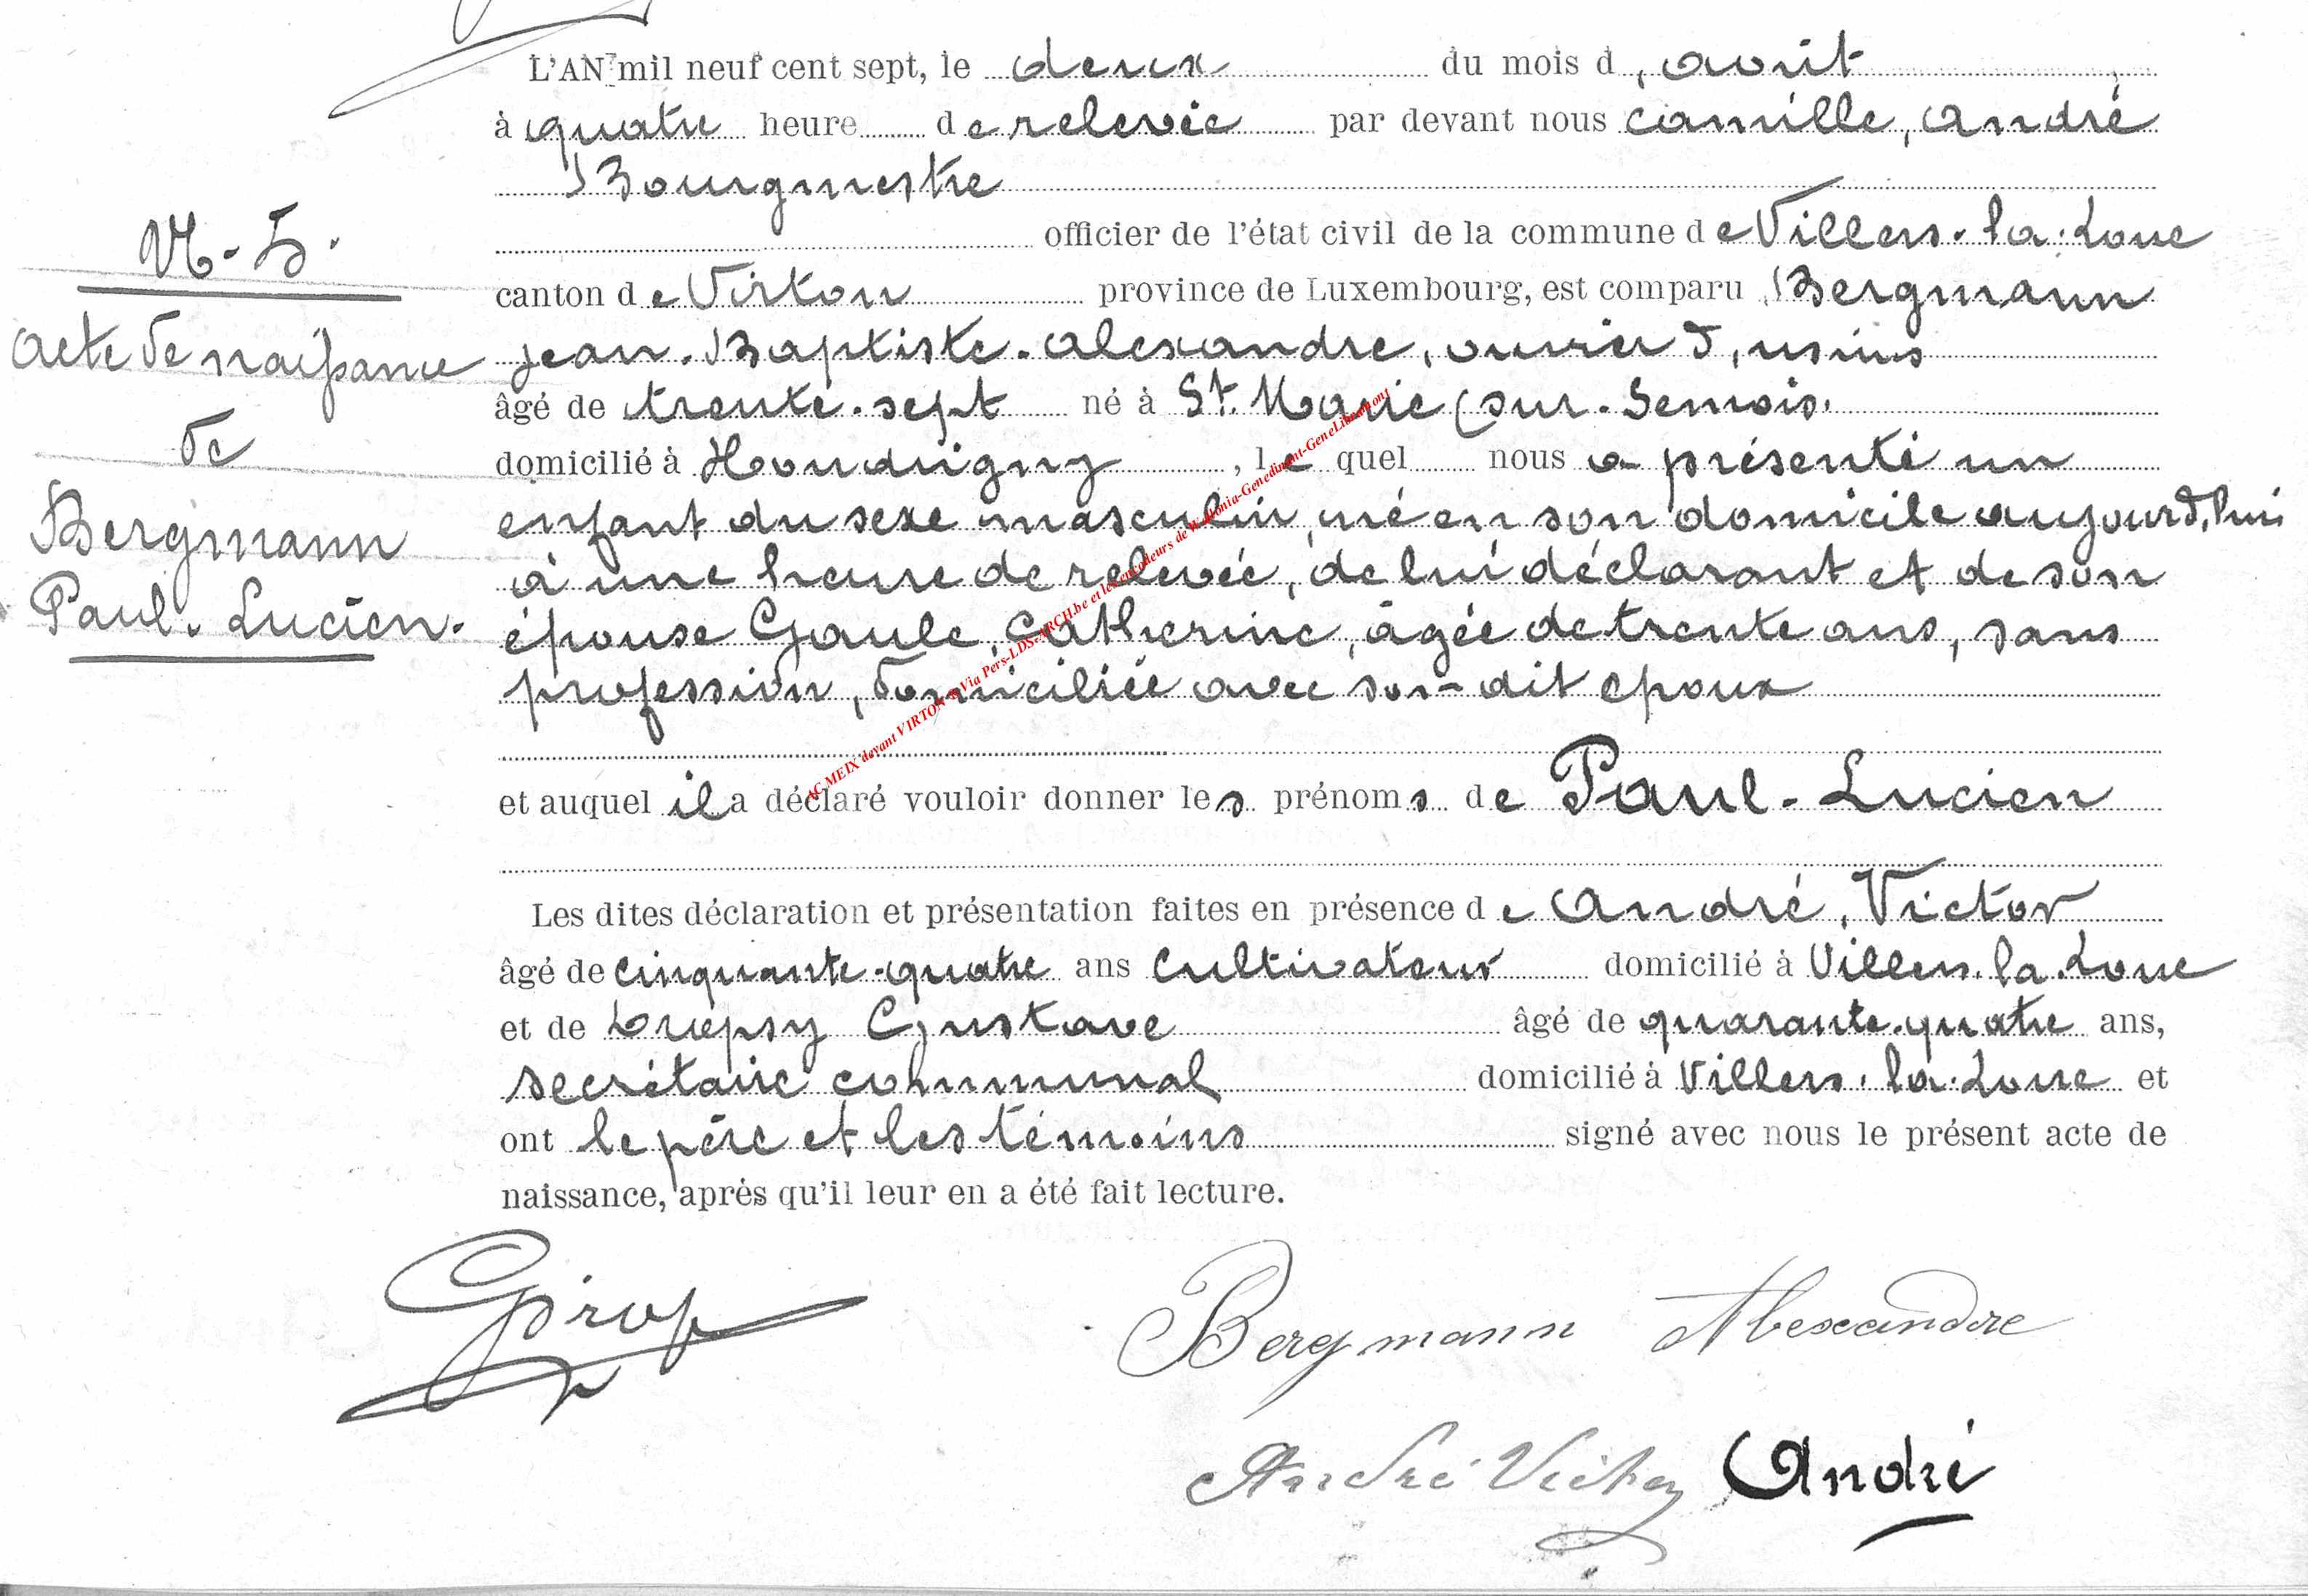 L'AN mil neuf cent sept, le deux du mois d, août
à quatre heure de relevée par devant nous Camille, André
Bourgmestre
officier de l'état civil de la commune de Villers-la-Loue
canton de Virton province de Luxembourg, est comparu Bergmann
Jean-Baptiste-Alexandre, ouvrier d, usines
âgé de trente-sept né à St. Marie (sur-Semois.
domicilié à Houdrigny, lequel nous a présenté un
enfant du sexe masculin, né en son domicile aujourd,hui
à une heure de relevée, de lui déclarant et de son
épouse Gaule, Catherine, âgée de trente ans, sans
profession, domiciliée avec son-dit époux
et auquel il a déclaré vouloir donner les prénoms de Paul-Lucien
Les dites déclaration et présentation faites en présence de André, Victor
âgé de cinquante-quatre ans cultivateur domicilié à Villers-la-Loue
et de Gustave âgé de quarante-quatre ans,
secrétaire communal domicilié à Villers-la-Loue et
ont le père et les témoins signé avec nous le présent acte de
naissance, après qu'il leur en a été fait lecture.
Acte de naissance
de
Bergmann
Paul-Lucien.
Bergmann Alexandre
André Victor André
AC MEIX devant VIRTON Via Pers-LDS-ARCH.be et les encodeurs de Wallonia-Genedinant-GeneLibramont